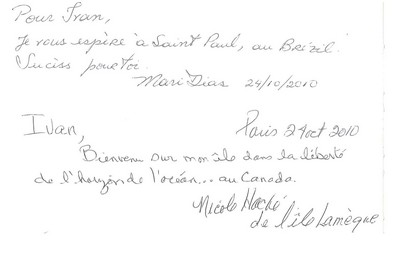 Pour Ivan,
Je vous espère à Saint Paul, au Brézil!
Suciss pour toi.
Mari Dias 24/10/2010
Ivan, Paris 24 oct 2010
Bienvenu sur mon île dans la liberté
de l'horizon de l'océan... au Canada.
Nicole Haché
de l'île Lamèque